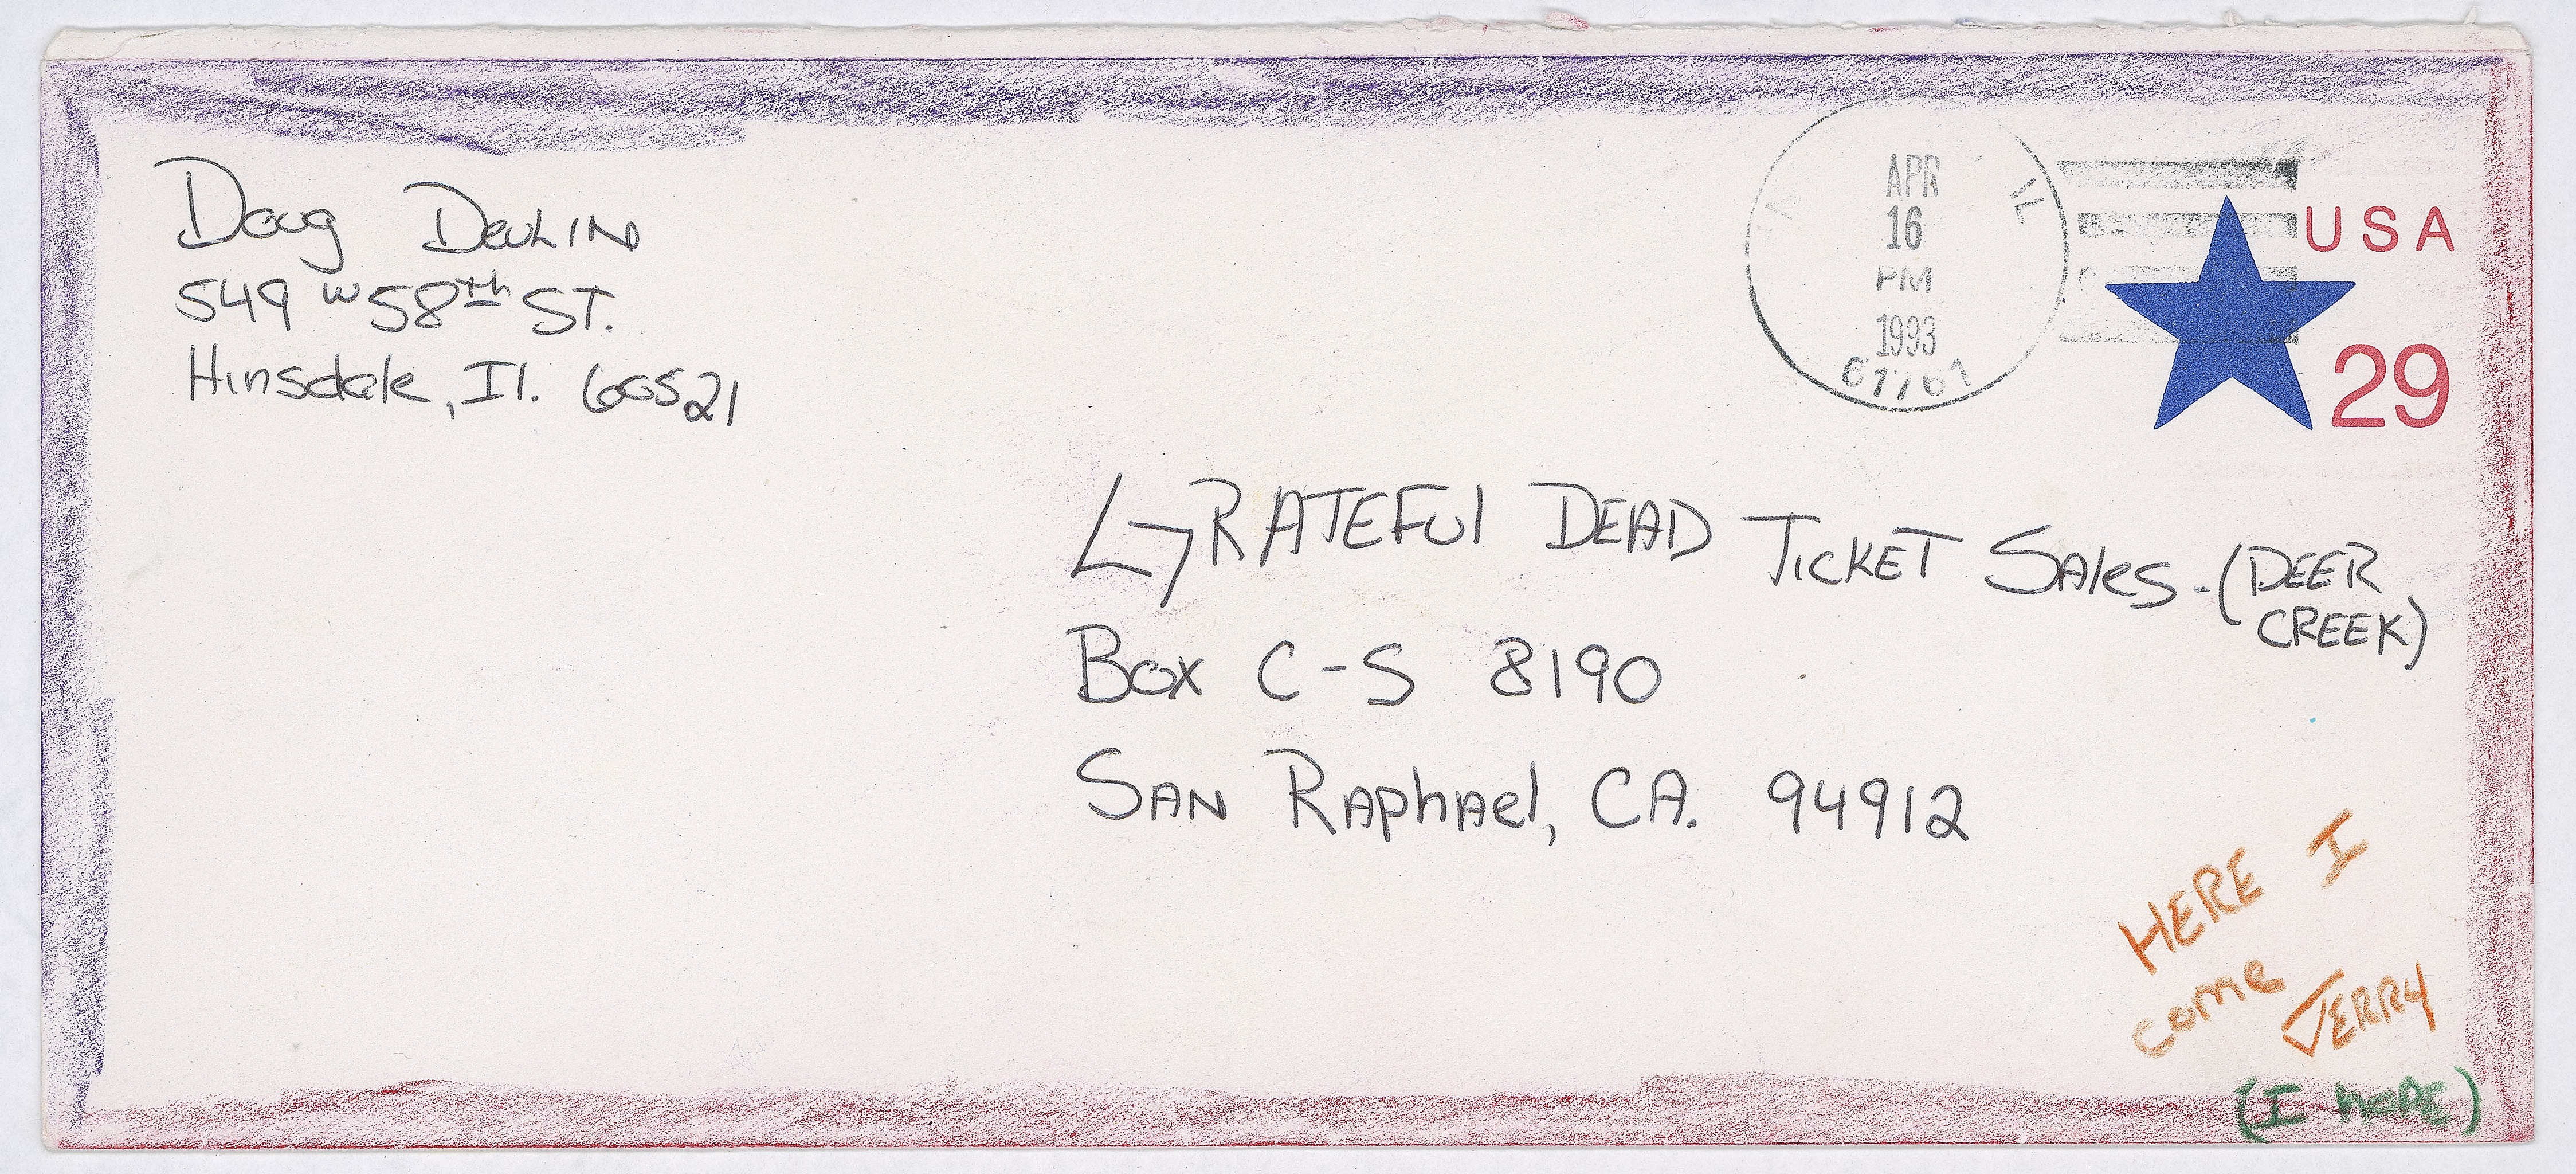 Doug Devlin
549 W 58th ST.
Hinsdale, Il. 60521
APR
16
PM
1993
IL
USA
29
GRATEFul DEAD TICKET SAles. (DEER
CREEK)
Box C-S 8190
SAN RAphAel, CA. 94912
HERE I
come JERRY
(I HOPE)